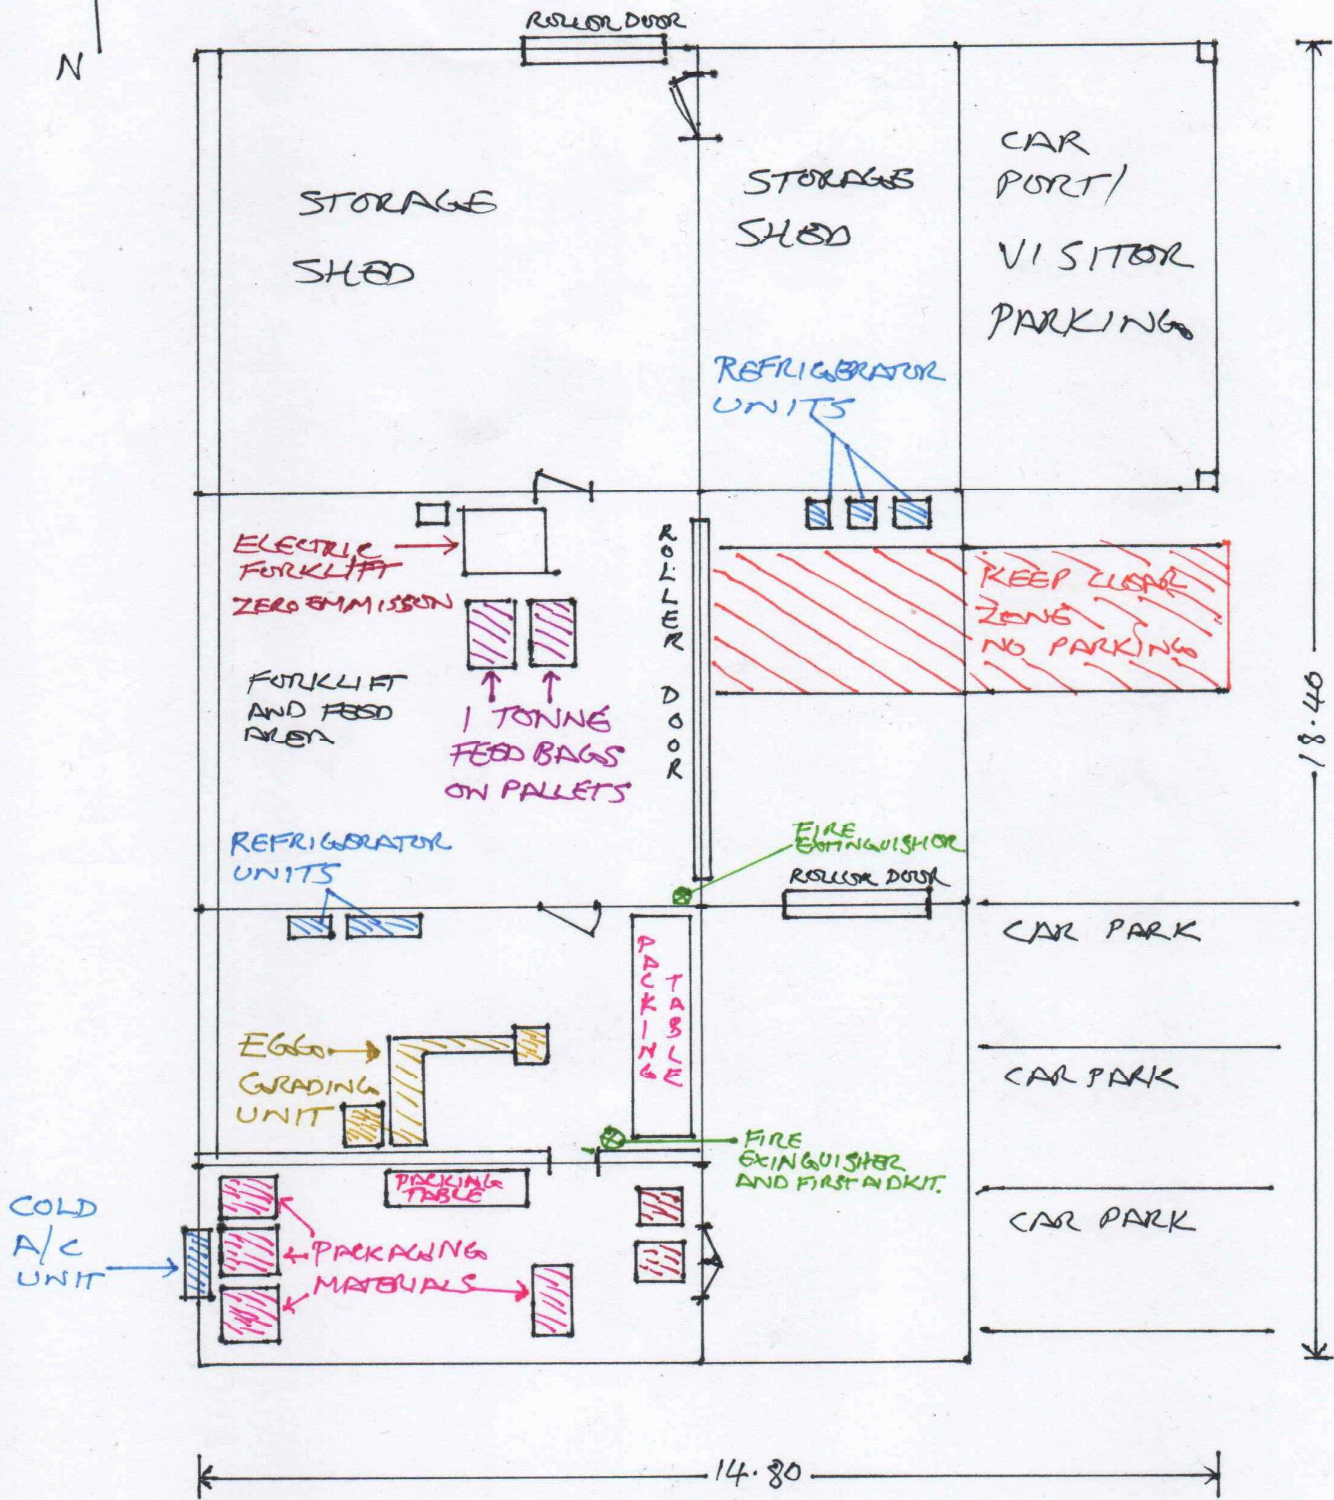 ROLLOR DOOR
N
STORAGE
SHED
STORAGE
SHED
CAR
PORT/
VISITOR
PARKING
REFRIGERATOR
UNITS
ELECTRIC
FORKLIFT
ZERO EMMISSON
ROLLER DOOR
KEEP CLEAR
ZONE
NO PARKING
FORKLIFT
AND FEED
AREA
1 TONNE
FEED BAGS
ON PALLETS
18.40
REFRIGERATOR
UNITS
FIRE
EXTINGUISHOR
ROLLOR DOOR
CAR PARK
PACKING
TABLE
EGG
GRADING
UNIT
CAR PARK
FIRE
EXINGUISHER
AND FIRST AID KIT.
PACKING
TABLE
COLD
A/C
UNIT
PACKAGING
MATERIALS
CAR PARK
14.80